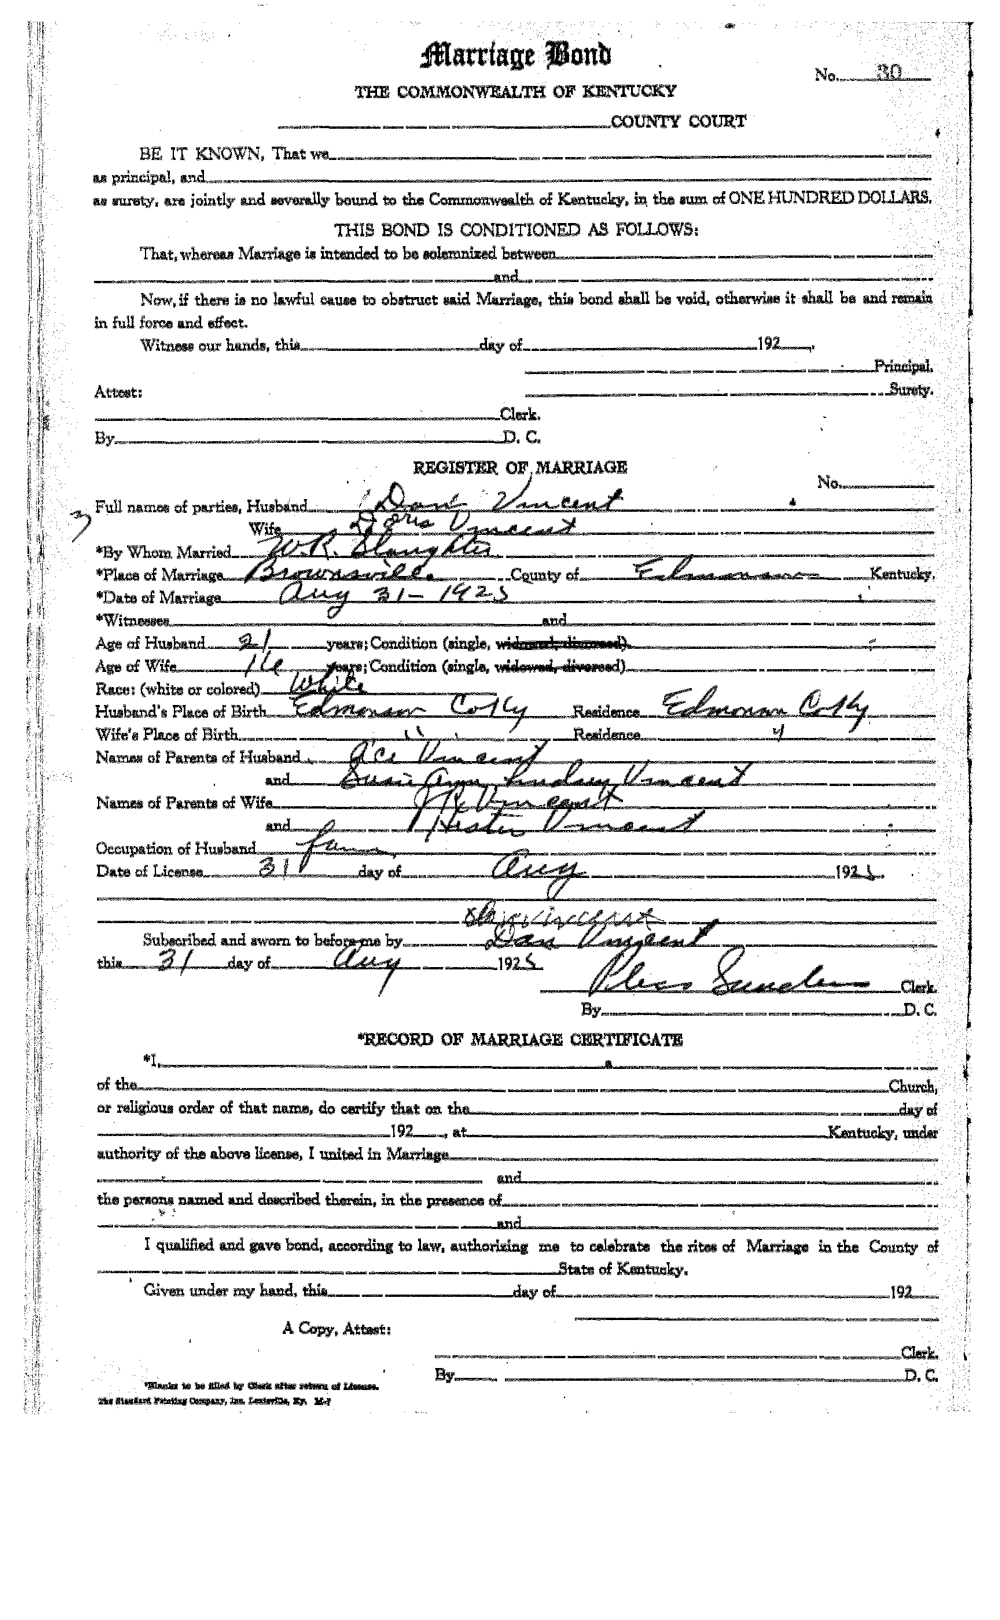 Marriage Bond
No. 30
THE COMMONWEALTH OF KENTUCKY
COUNTY COURT
BE IT KNOWN, That we
as principal, and
as surety, are jointly and severally bound to the Commonwealth of Kentucky, in the sum of ONE HUNDRED DOLLARS.
THIS BOND IS CONDITIONED AS FOLLOWS:
That, whereas Marriage is intended to be solemnized between
and
Now, if there is no lawful cause to obstruct said Marriage, this bond shall be void, otherwise it shall be and remain
in full force and effect.
Witness our hands, this day of 192 .
Principal.
Attest: Surety.
Clerk.
By D. C.
REGISTER OF MARRIAGE
No.
Full names of parties, Husband Dan Vincent
Wife Doris Vincent
*By Whom Married W.R. Slaughter
*Place of Marriage Brownsville County of Edmonson Kentucky.
*Date of Marriage Aug 31-1925
*Witnesses and
Age of Husband 21 years; Condition (single, widowed, divorced)
Age of Wife 16 years; Condition (single, widowed, divorced)
Race: (white or colored) White
Husband's Place of Birth Edmonson Co Ky Residence Edmonson Co Ky
Wife's Place of Birth " Residence "
Names of Parents of Husband Ace Vincent
and Susie Ann Lindsey Vincent
Names of Parents of Wife Vincent
and Hester Vincent
Occupation of Husband farm
Date of License 31 day of Aug 1925.
Dan Vincent
Subscribed and sworn to before me by Dan Vincent
this 31 day of Aug 1925
Pless Sanders Clerk
By D. C.
*RECORD OF MARRIAGE CERTIFICATE
*I, a
of the Church,
or religious order of that name, do certify that on the day of
192 , at Kentucky, under
authority of the above license, I united in Marriage
and
the persons named and described therein, in the presence of
and
I qualified and gave bond, according to law, authorizing me to celebrate the rites of Marriage in the County of
State of Kentucky.
Given under my hand, this day of 192
A Copy, Attest:
Clerk.
By D. C.
*Blanks to be filled by Clerk after return of License.
The Standard Printing Company, Inc. Louisville, Ky. M-7